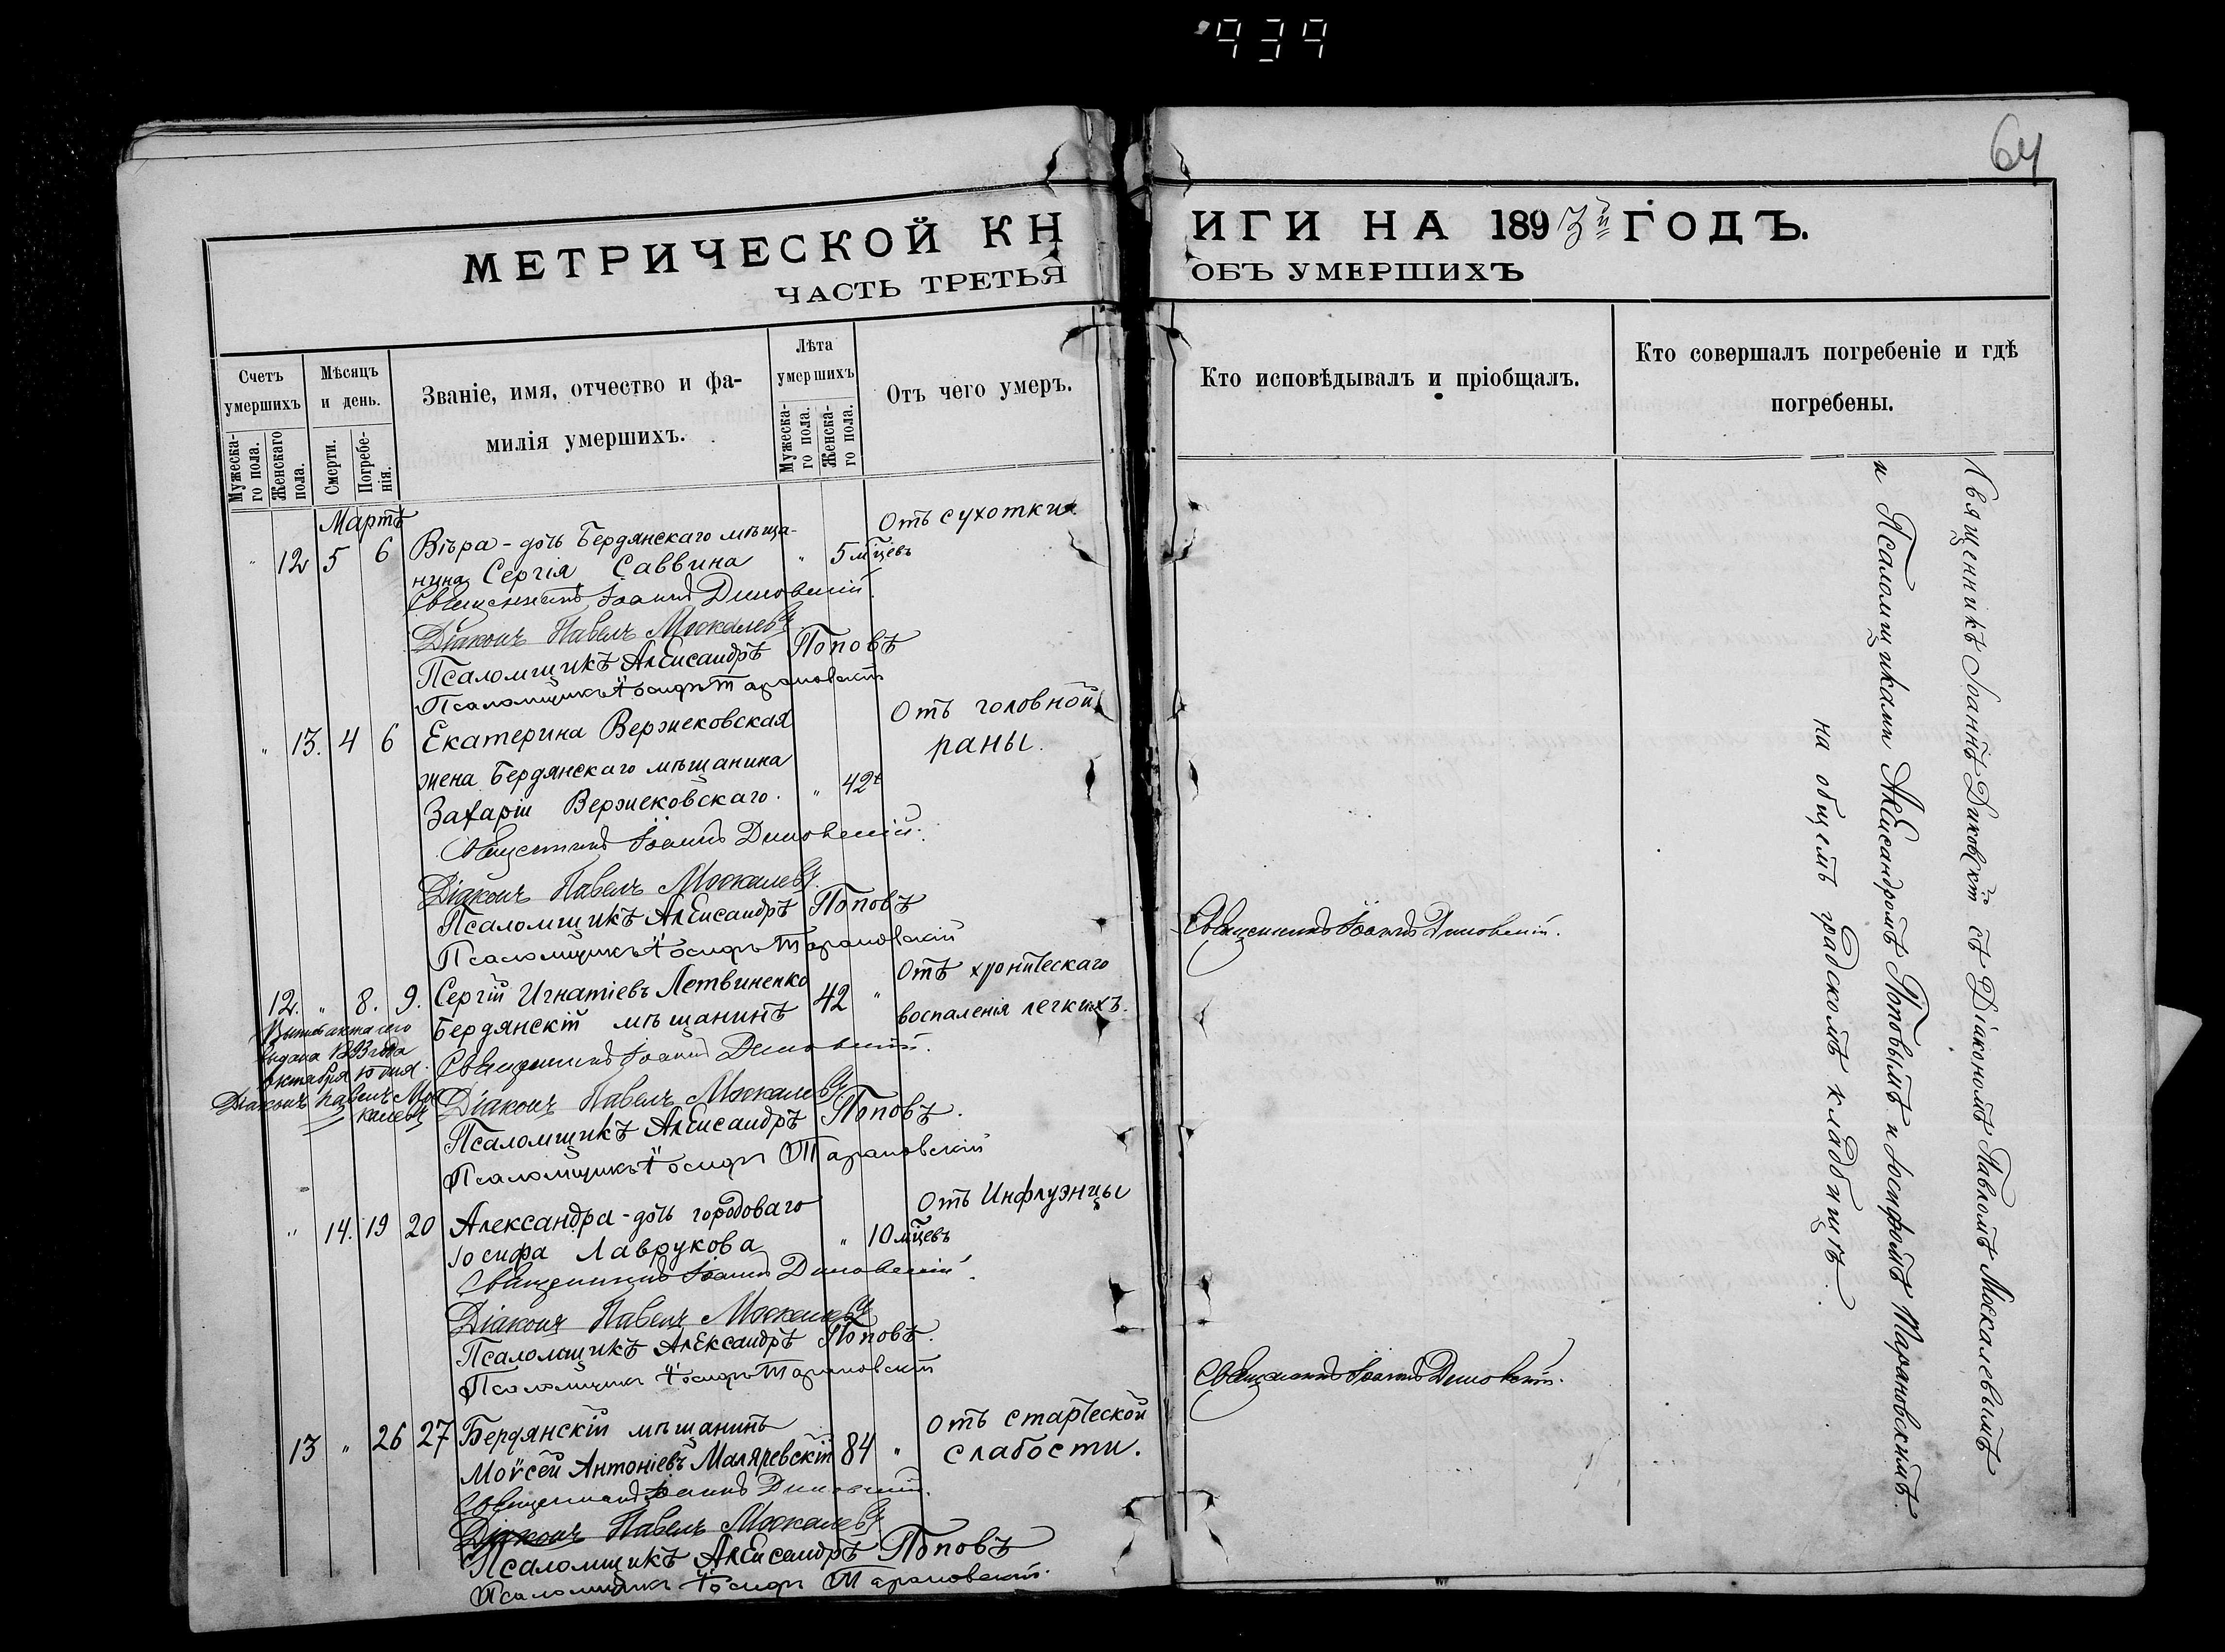 939
64
МЕТРИЧЕСКОЙ КНИГИ НА 1893й ГОДЪ.
ЧАСТЬ ТРЕТЬЯ ОБЪ УМЕРШИХЪ
Счетъ умершихъ
Мѣсяцъ и день.
Званіе, имя, отчество и фа-
милія умершихъ.
Лѣта умершихъ
Отъ чего умеръ.
Кто исповѣдывалъ и пріобщалъ.
Кто совершалъ погребеніе и гдѣ
погребены.
Мужеска-
го пола.
Женскаго
пола.
Смерти.
Погребе-
нія.
Мужеска-
го пола.
Женска-
го пола.
Мартъ
" 12 5 6 Вѣра - дочь Бердянскаго мѣща- " 5 мцевъ Отъ сухотки
нина Сергія Саввина
Священникъ Іоаннъ
Діаконъ Павелъ Москалевъ
Псаломщикъ Александръ Поповъ
Псаломщикъ Іосифъ Тарановскій
" 13. 4 6 Екатерина Вержековская Отъ головной
раны.
жена Бердянскаго мѣщанина
Захаріи Вержековскаго. " 42
Священникъ Іоаннъ
Діаконъ Павелъ Москалевъ
Псаломщикъ Александръ Поповъ
Псаломщикъ Іосифъ Тарановскій
12. " 8. 9. Сергій Игнатіевъ Летвиненко 42 " Отъ хроническаго
Бердянскій мѣщанинъ воспаленія легкихъ.
Священникъ Іоаннъ
выдана 1893 года
октября 10 дня.
Діаконъ Павелъ Мос
калевъ
Діаконъ Павелъ Москалевъ
Псаломщикъ Александръ Поповъ.
Псаломщикъ Іосифъ Тарановскій
" 14. 19 20 Александра - дочь городоваго " 10 мцевъ Отъ Инфлуэнцы
Іосифа Лаврукова
Священникъ Іоаннъ
Діаконъ Павелъ Москалевъ
Псаломщикъ Александръ Поповъ.
Псаломщикъ Іосифъ Тарановскій
13 " 26 27 Бердянскій мѣщанинъ 84 " Отъ старческой
Моѵсей Антоніевъ Маляревскій слабости.
Священникъ Іоаннъ
Діаконъ Павелъ Москалевъ
Псаломщикъ Александръ Поповъ
Псаломщикъ Іосифъ Тарановскій.
Священникъ Іоаннъ
Священникъ Іоаннъ
Священникъ Іоаннъ съ Діакономъ Павломъ Москалевымъ
и Псаломщиками Александромъ Поповымъ и Іосифомъ Тарановскимъ.
на общемъ градскомъ кладбищѣ.